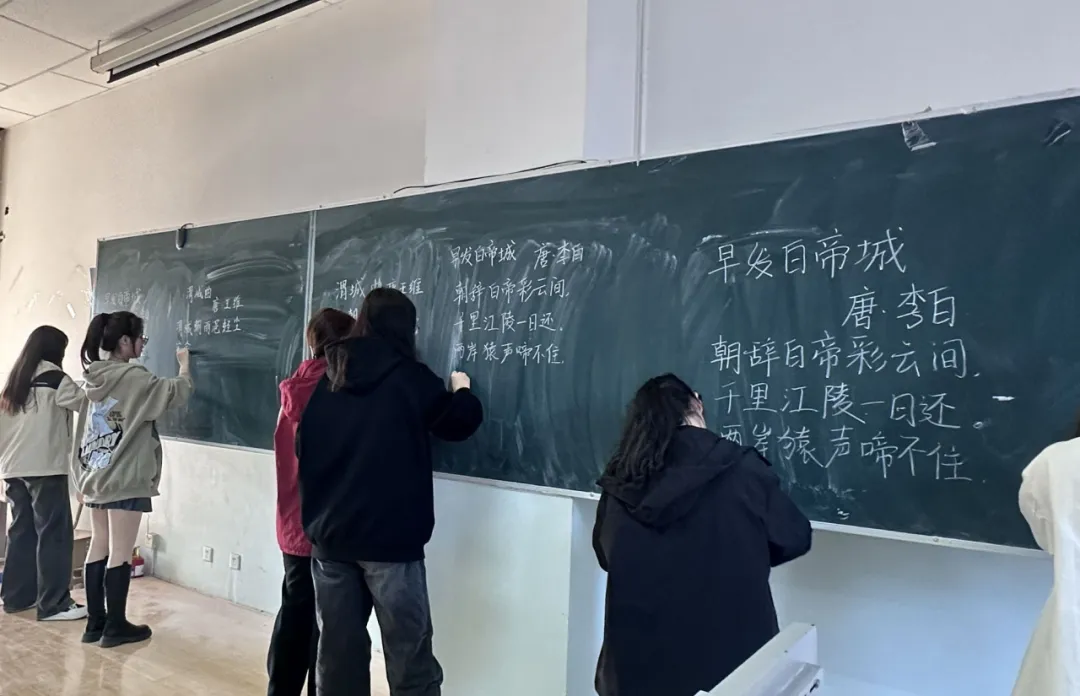 渭城曲
唐 王维
渭城朝雨浥轻尘
渭城
王维
早发白帝城 唐·李白
朝辞白帝彩云间,
千里江陵一日还.
两岸猿声啼不住.
早发白帝城
唐·李白
朝·辞白帝彩云间.
千里江陵一日还.
两岸猿声啼不住.